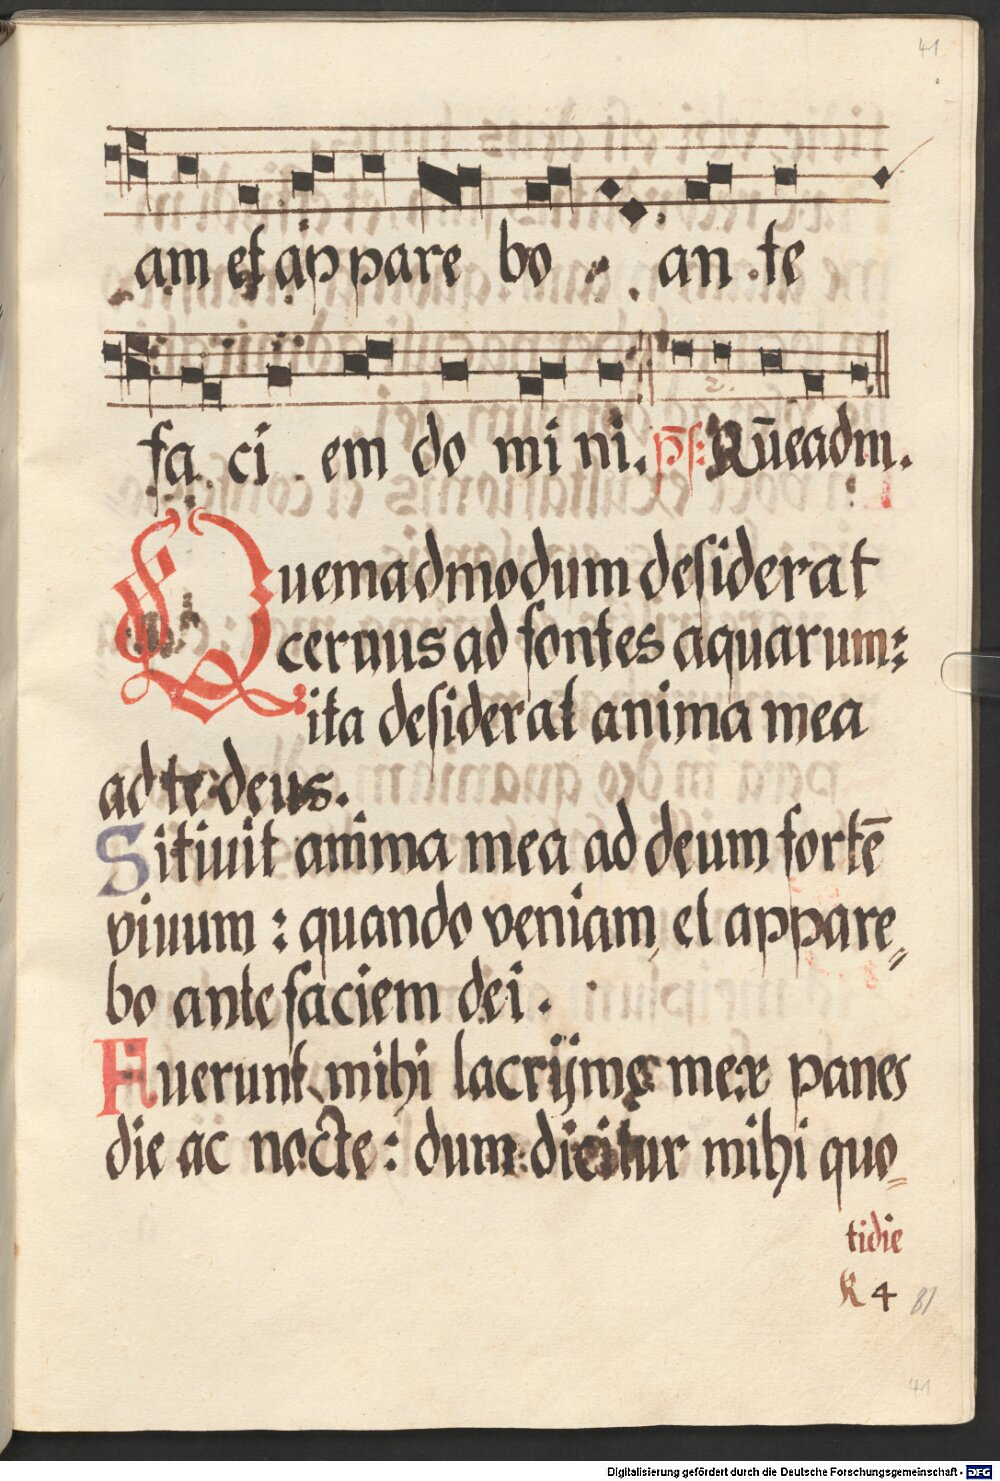 41
am et appare bo an te
fa ci em do mi ni. ps: Quēadm.
Quemadmodum desiderat
ceruus ad fontes aquarum:
ita desiderat anima mea
ad te deus.
Sitiuit anima mea ad deum fortē
viuum : quando veniam, et appare=
bo ante faciem dei .
Fuerunt mihi lacrijmę meæ panes
die ac nocte : dum dicitur mihi quo=
tidie
K 4 81
41
Digitalisierung gefördert durch die Deutsche Forschungsgemeinschaft - DFG